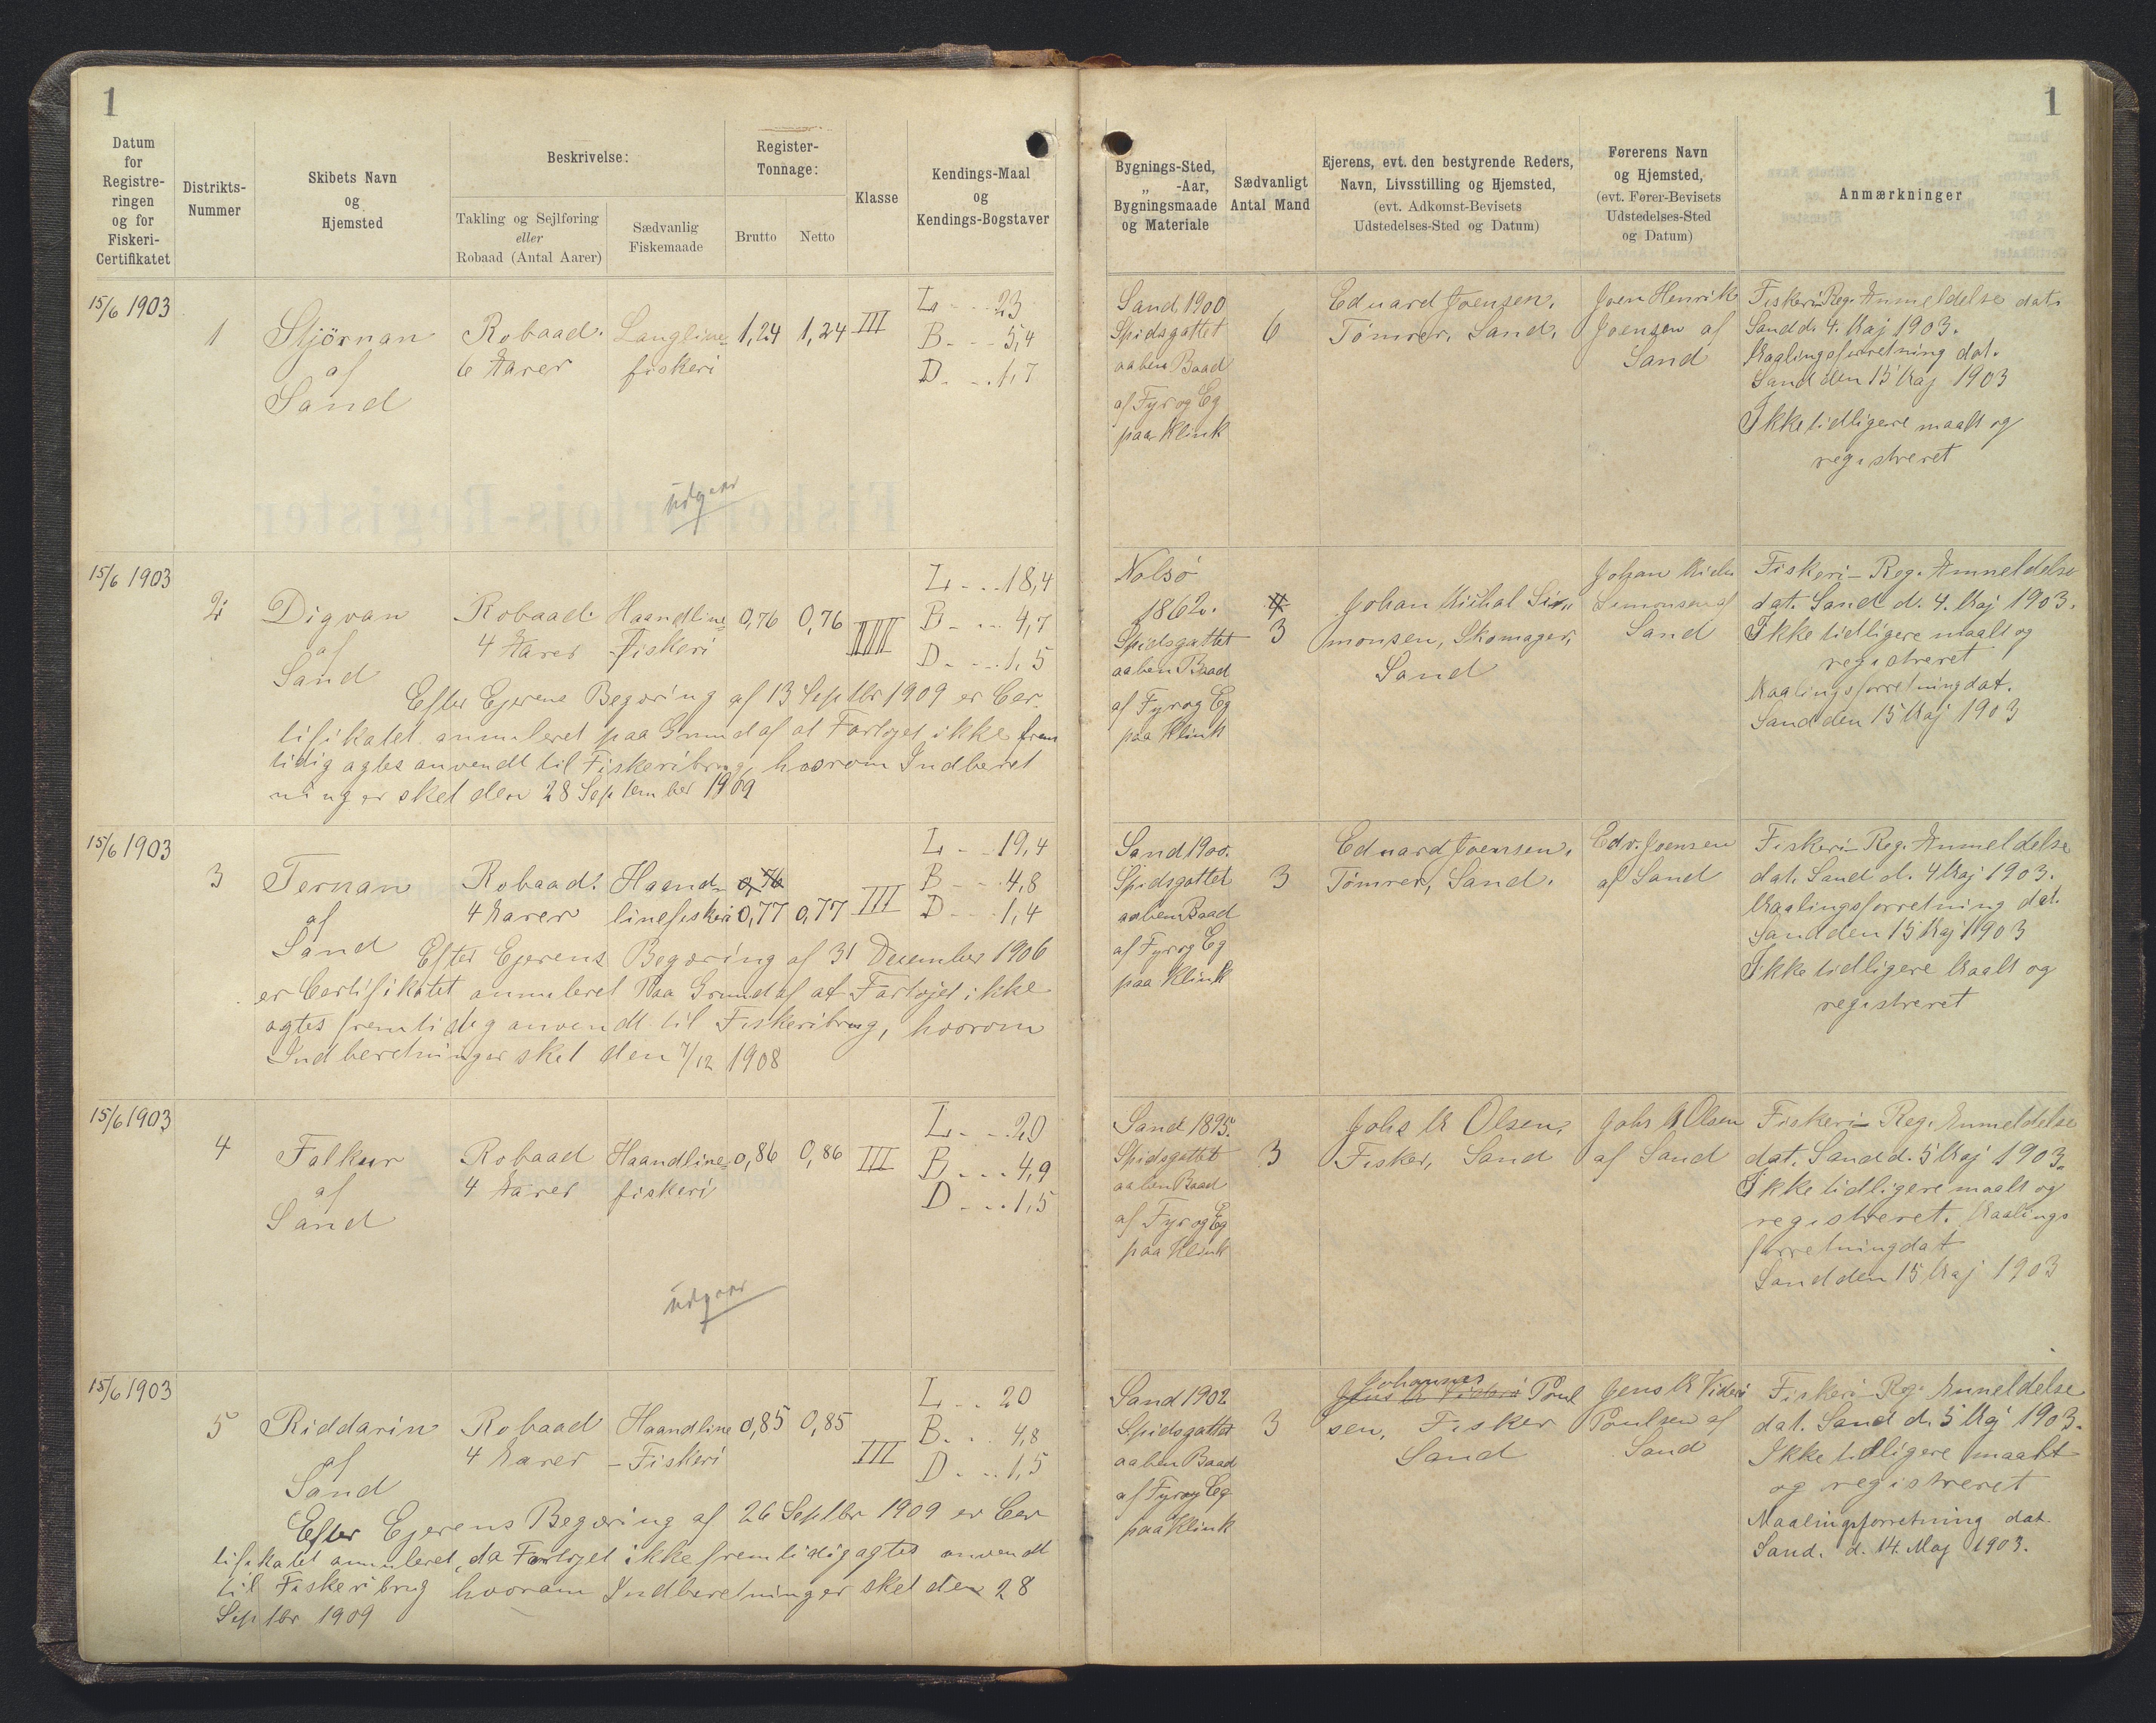 1
Datum
for
Registre-
ringen
og for
Fiskeri-
Certifikatet
Distrikts-
Nummer
Skibets Navn
og
Hjemsted
Beskrivelse:
Takling og Sejlføring
eller
Robaad (Antal Aarer)
Sædvanlig
Fiskemaade
Register-
Tonnage:
Brutto
Netto
Klasse
Kendings-Maal
og
Kendings-Bogstaver
15/6 1903
1
Stjörnan
af
Sand
Robaad.
6 Aarer
Langline-
fiskeri
1,24
1,24
III
L - - 23
B - - - 5,4
D. - - 1,7
udgaar
15/6 1903
2
Digvan
af
Sand
Robaad.
4 Aarer
Haandline-
Fiskeri
0,76
0,76
III
L - - - 18,4
B - - - 4,7
D. - - - 1,5
Efter Ejerens Begæring af 13 Septbr 1909 er Cer-
tifikatet annuleret paa Grund af at Fartøjet ikke frem
tidig agtes anvendt til Fiskeribrug, hvorom Indberet
ning er sket den 28 September 1909
15/6 1903
3
Ternan
af
Sand
Robaad.
4 Aarer
Haand-
linefiskeri
0,76
0,77
0,77
III
L - - 19,4
B - - - 4,8
D - - - 1,4
Efter Ejerens Begæring af 31 December 1906
er Certifikatet annuleret Paa Grund af at Fartøjet ikke
agtes fremtidig anvendt til Fiskeribrug, hvorom
Indberetning er sket den 7/12 1908
15/6 1903
4
Falkur
af
Sand
Robaad
4 Aarer
Haandline-
fiskeri
0,86
0,86
III
L. - - 20
B - - - 4,9
D - - - 1,5
udgaar
15/6 1903
5
Riddarin
af
Sand
Robaad
4 Aarer
Haandline
- Fiskeri
0,85
0,85
III
L - - 20
B. - - 4,8
D - - - 1,5
Efter Ejerens Begæring af 26 Septbr 1909 er Cer
tifikatet annuleret, da Fartøjet ikke fremtidig agtes anvendt
til Fiskeribrug hvorom Indberetning er sket den 28
Septbr 1909
1
Bygnings-Sted,
„ -Aar,
Bygningsmaade
og Materiale
Sædvanligt
Antal Mand
Ejerens, evt. den bestyrende Reders,
Navn, Livsstilling og Hjemsted,
(evt. Adkomst-Bevisets
Udstedelses-Sted og Datum)
Førerens Navn
og Hjemsted,
(evt. Fører-Bevisets
Udstedelses-Sted
og Datum)
Anmærkninger
Sand 1900
Spidsgattet
aaben Baad
af Fyr og Eg
paa Klink
6
Eduard Joensen,
Tömrer, Sand.
Joen Henrik
Joensen af
Sand
Fiskeri-Reg. Anmeldelse dat.
Sand d. 4. Maj 1903.
Maalingsforretning dat.
Sand den 15 Maj 1903
Ikke tidligere maalt og
registreret
Nolsö
1862.
Spidsgattet
aaben Baad
af Fyr og Eg
paa Klink
4
3
Johan Michal Si-
monsen, Skomager,
Sand
Johan Mich.
Simonsen af
Sand
Fiskeri-Reg. Anmeldelse
dat. Sand d. 4. Maj 1903.
Ikke tidligere maalt og
registreret
Maalingsforretning dat.
Sand den 15 Maj 1903
Sand 1900.
Spidsgattet
aaben Baad
af Fyr og Eg
paa Klink
3
Eduard Joensen,
Tömrer, Sand.
Edv. Joensen
af Sand
Fiskeri-Reg. Anmeldelse
dat. Sand d. 4 Maj 1903.
Maalingsforretning dat.
Sand den 15 Maj 1903
Ikke tidligere Maalt og
registreret
Sand 1895.
Spidsgattet
aaben Baad
af Fyr og Eg
paa Klink
3
Johs M Olsen,
Fisker, Sand
Johs M Olsen
af Sand
Fiskeri-Reg. Anmeldelse
dat. Sand d. 5 Maj 1903.
Ikke tidligere maalt og
registreret. Maalings
forretning dat
Sand den 15 Maj 1903
Sand 1902
Spidsgattet
aaben Baad
af Fyr og Eg
paa Klink
3
Johannes
Jens M Poul
sen, Fisker
Sand
Jens M
Poulsen af
Sand
Fiskeri-Reg. Anmeldelse
dat. Sand d. 5 Maj 1903.
Ikke tidligere maalt
og registreret
Maalingsforretning dat.
Sand. d. 14. Maj 1903.